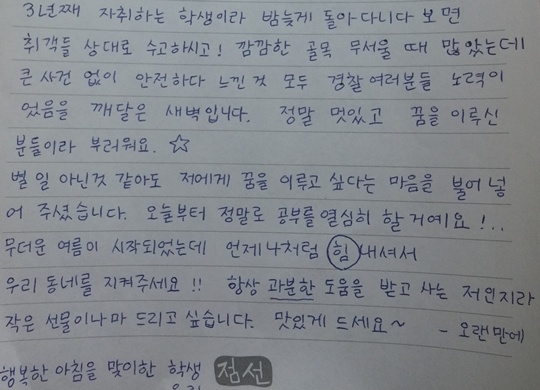 3년째 자취하는 학생이라 밤늦게 돌아다니다 보면
취객들 상대로 수고하시고! 깜깜한 골목 무서울 때 많았는데
큰 사건 없이 안전하다 느낀 것 모두 경찰여러분들 노력이
었음을 깨달은 새벽입니다. 정말 멋있고 꿈을 이루신
분들이라 부러워요. ☆
별 일 아닌것 같아도 저에게 꿈을 이루고 싶다는 마음을 불어 넣
어 주셨습니다. 오늘부터 정말로 공부를 열심히 할 거예요!..
무더운 여름이 시작되었는데 언제나처럼 힘내셔서
우리 동네를 지켜주세요!! 항상 과분한 도움을 받고 사는 저인지라
작은 선물이나마 드리고 싶습니다. 맛있게 드세요~ - 오랜만에
행복한 아침을 맞이한 학생 점선